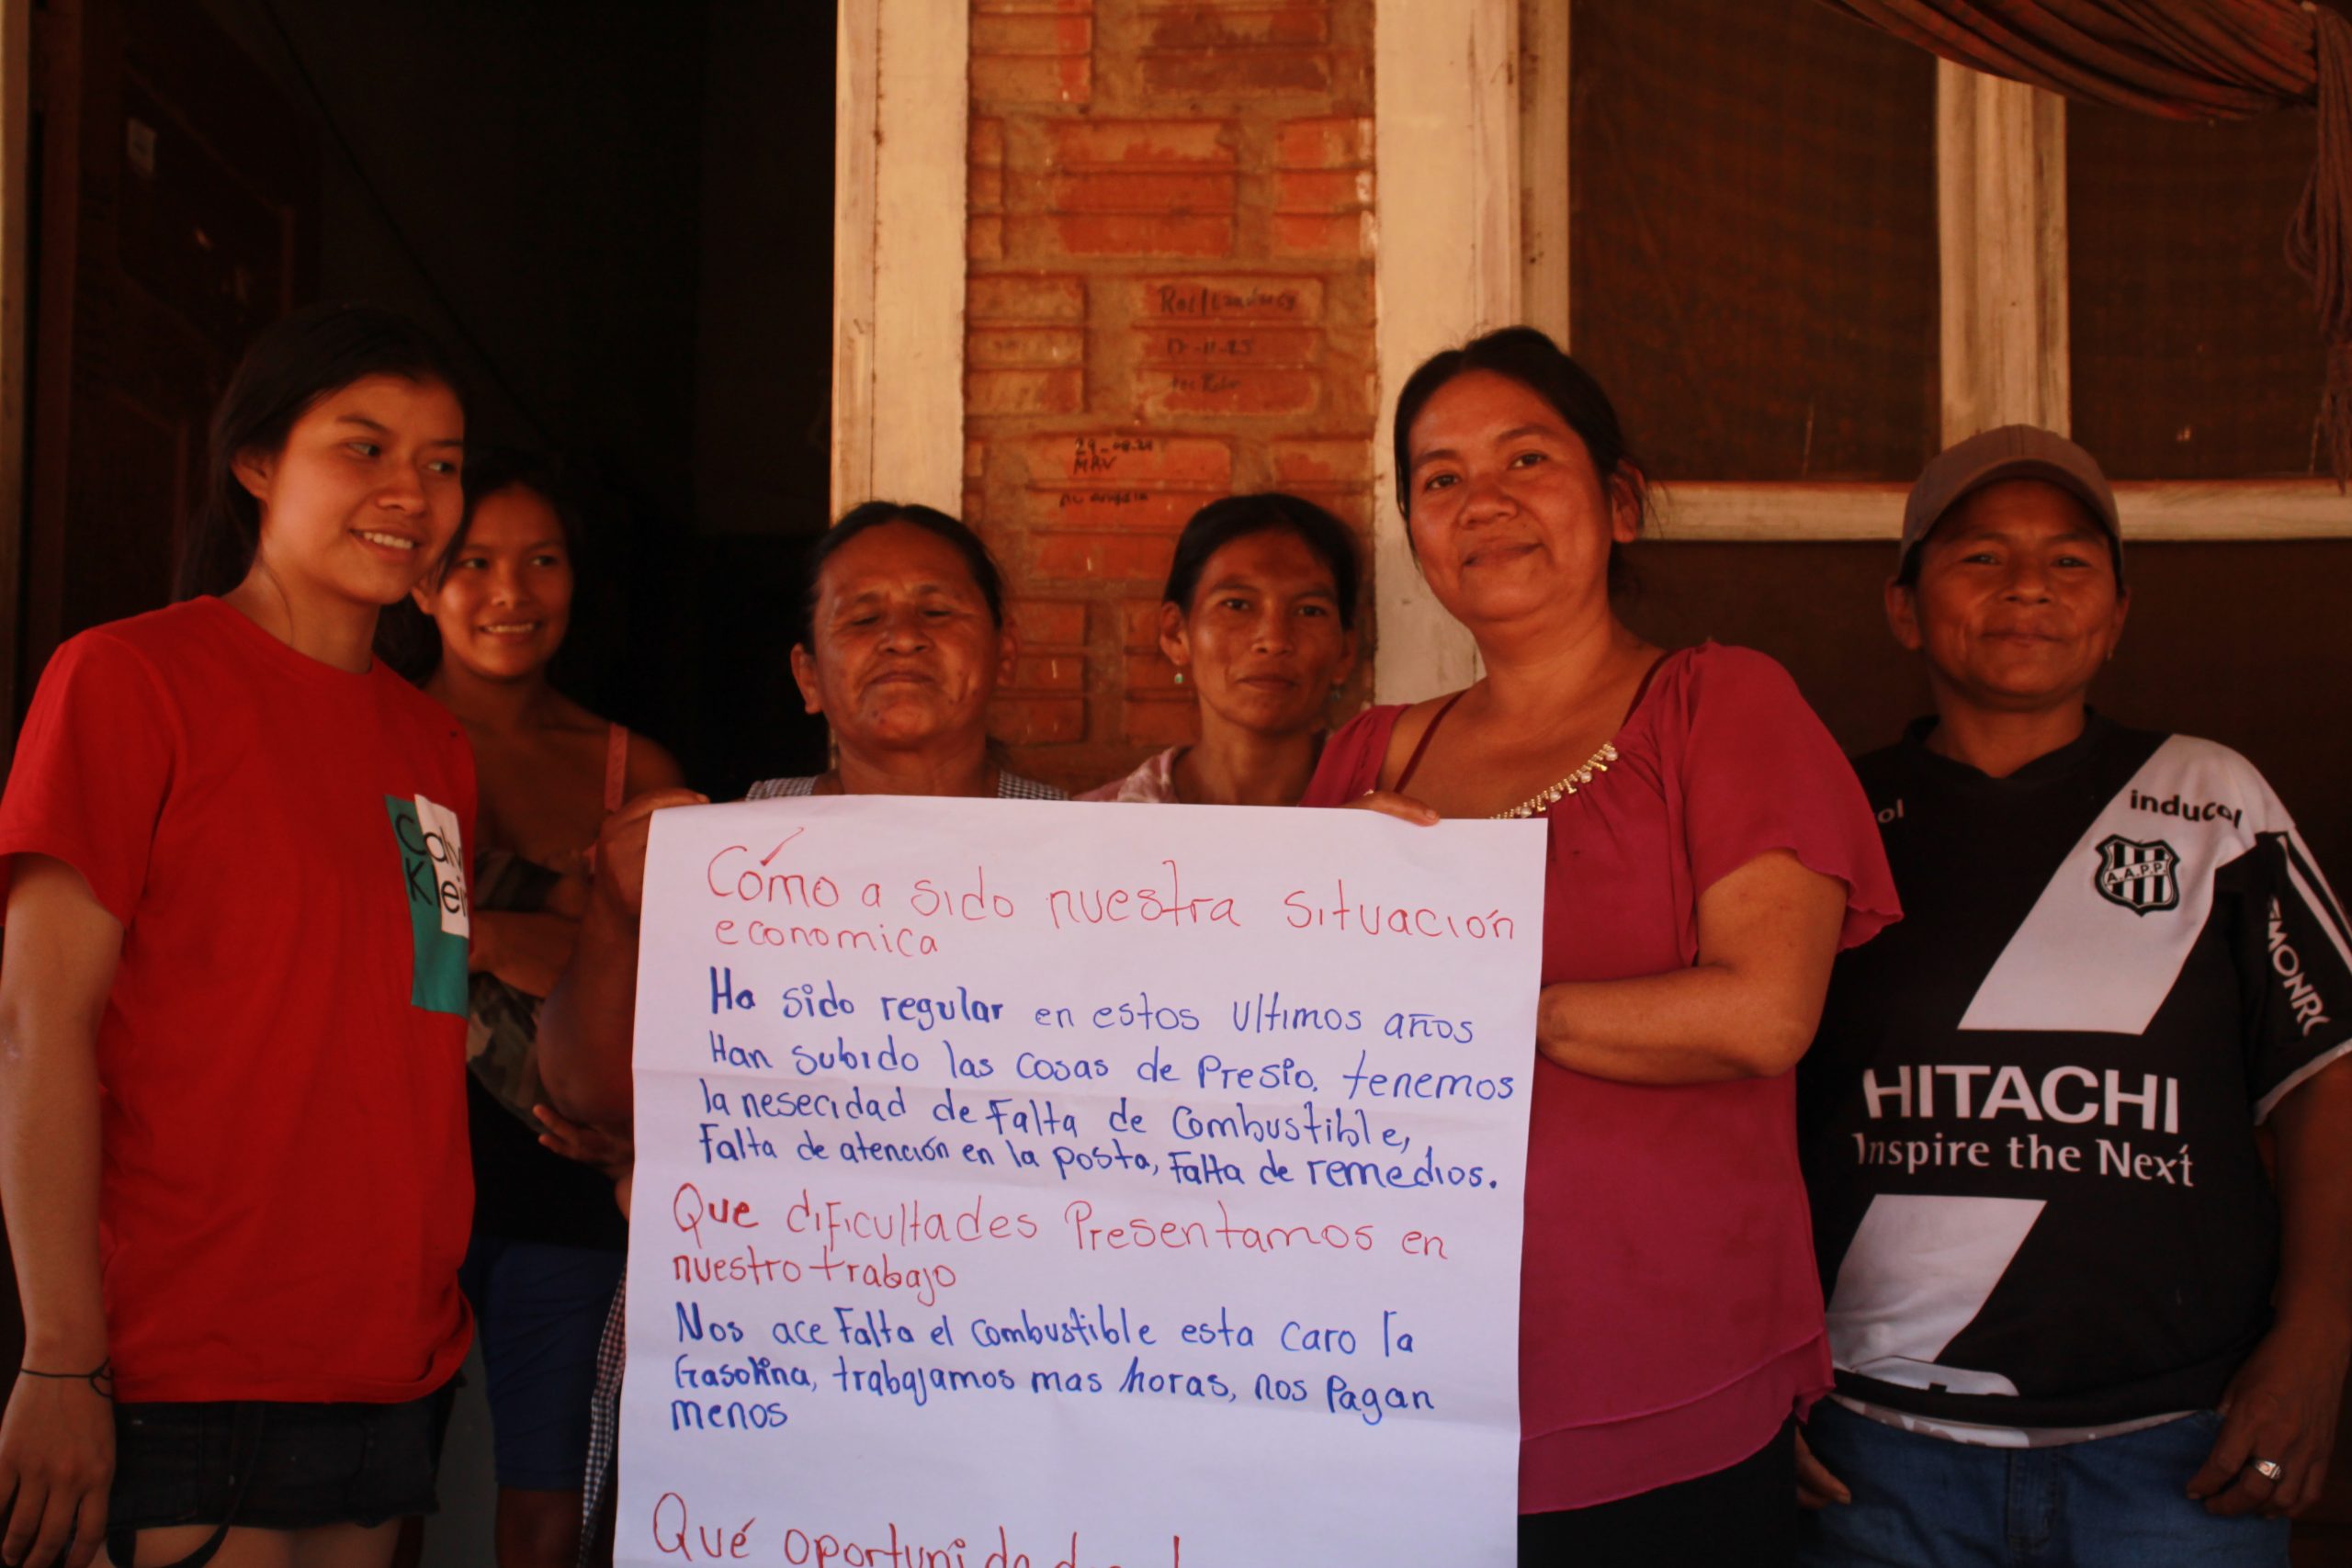 29-
MAV
Calv
Klei
ol
inducol
A.A.P.P.
HITACHI
Inspire the Next
Cómo a sido nuestra situación
economica
Ha sido regular en estos ultimos años
Han subido las cosas de Presio. tenemos
la nesecidad de Falta de Combustible,
Falta de atención en la posta, Falta de remedios.
Que dificultades Presentamos en
nuestro trabajo
Nos ace Falta el combustible esta caro la
Gasolina, trabajamos mas horas, nos Pagan
menos
Qué